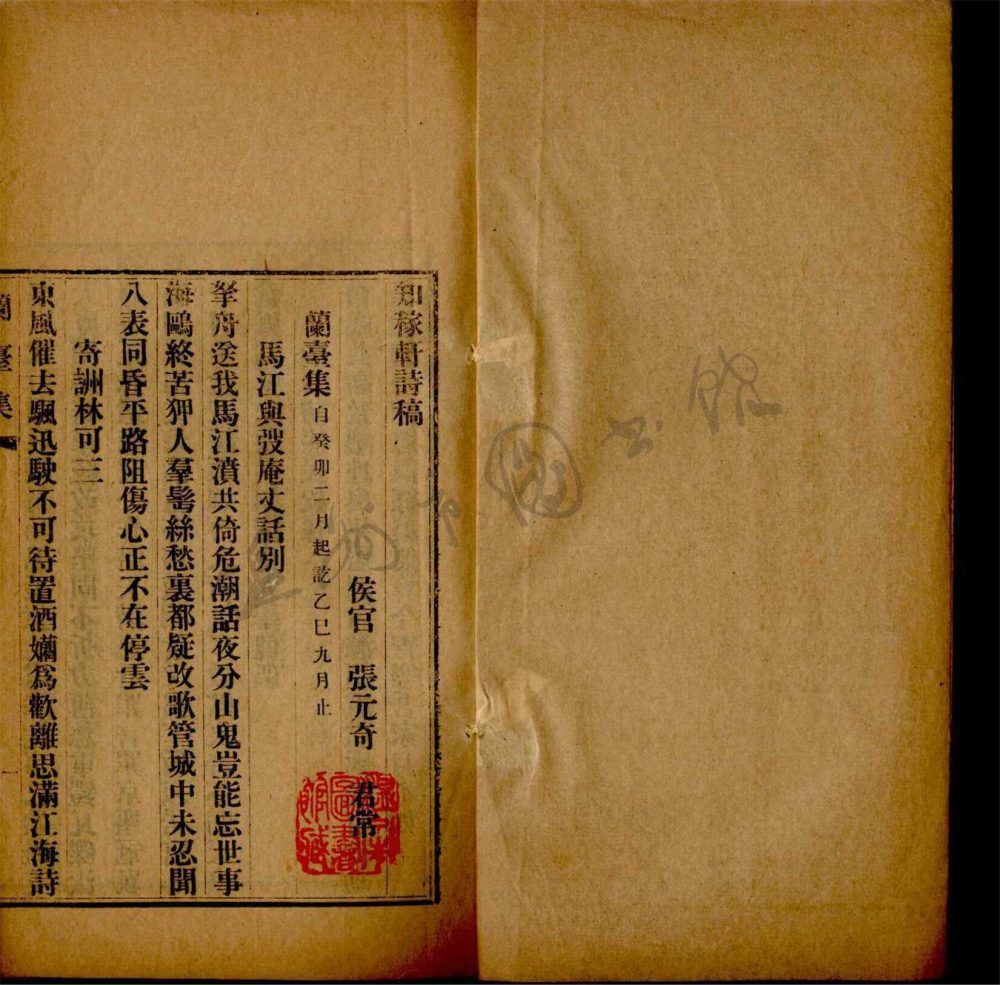 知稼軒詩稿
侯官 張元奇 君常
蘭臺集 自癸卯二月起訖乙巳九月止
馬江與弢庵丈話別
拏舟送我馬江濆共倚危潮話夜分山鬼豈能忘世事
海鷗終苦狎人羣鬢絲愁裏都疑改歌管城中未忍聞
八表同昏平路阻傷心正不在停雲
寄詶林可三
東風催去颿迅駛不可待置酒嬾爲歡離思滿江海詩
蘭臺集
一
圖書館藏
圖書館